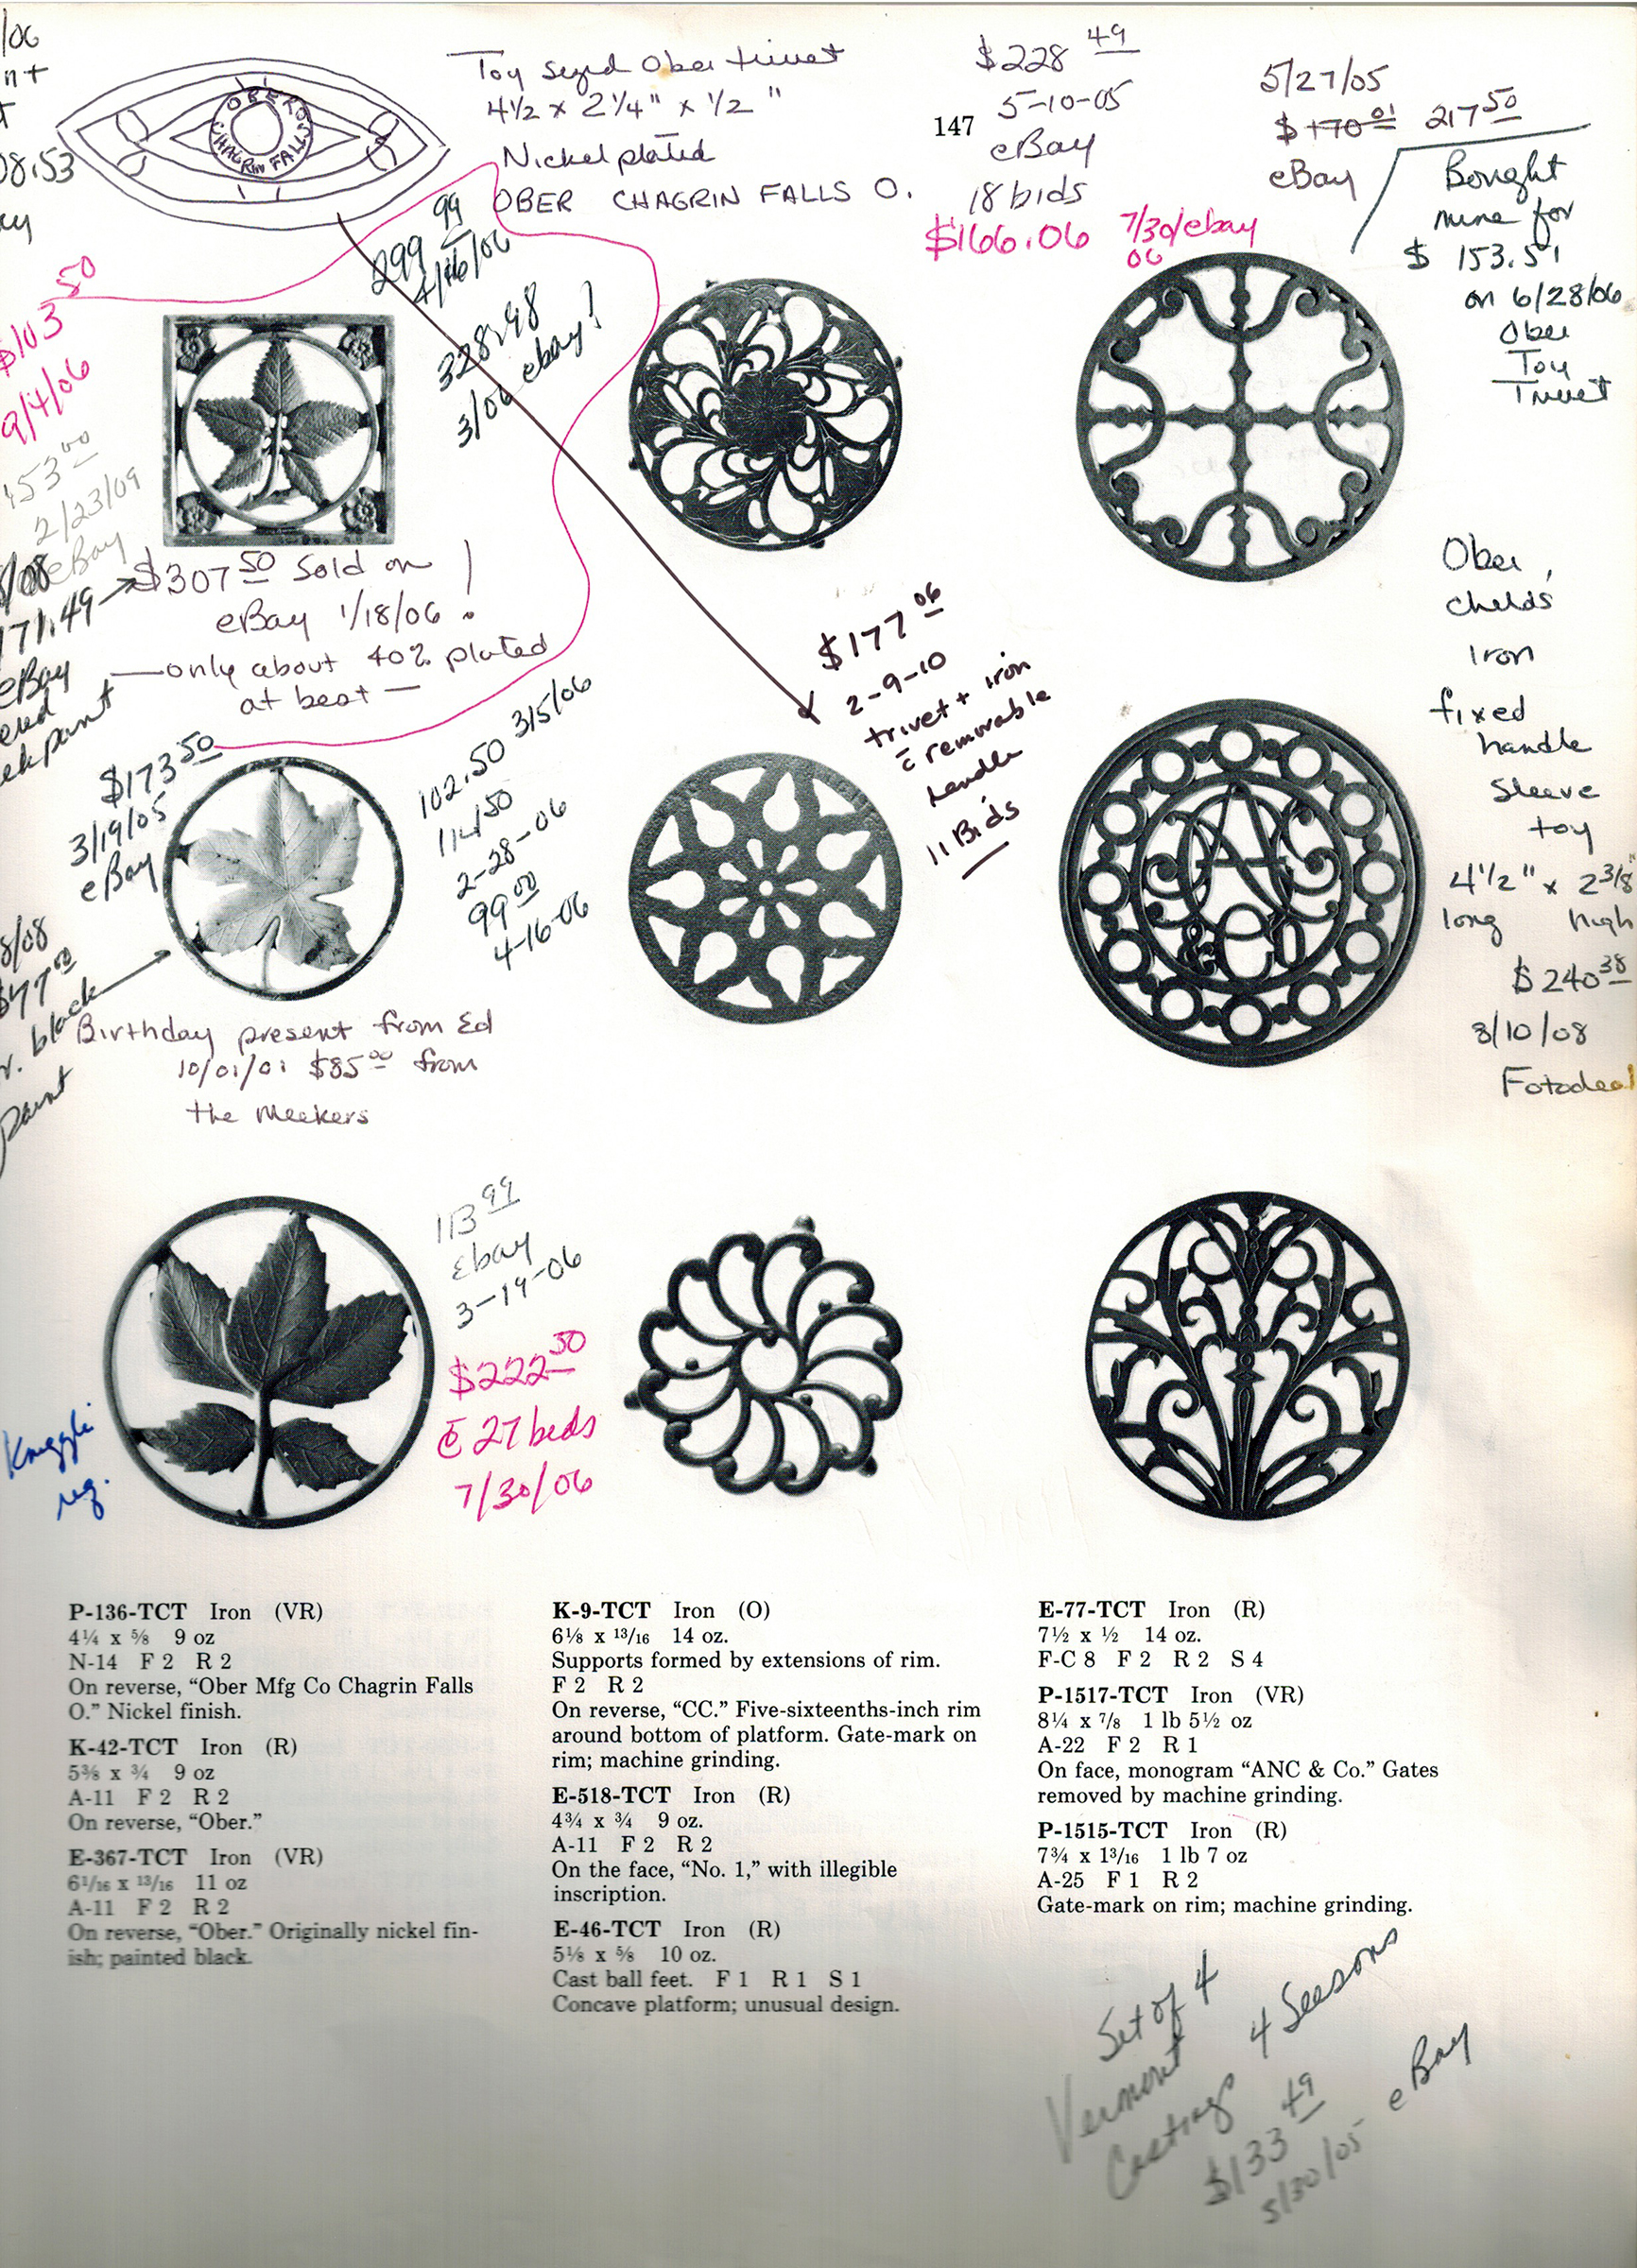 /06
08.53
OBER
CHAGRIN FALLS O
Toy sized Ober trivet
4½ x 2¼" x ½"
Nickel plated
OBER CHAGRIN FALLS O.
147
$228 49
5-10-05
eBay
18 bids
$166.06 7/30/ebay
06
5/27/05
$170 01 217 50
eBay
Bought
mine for
$ 153.51
on 6/28/06
Ober
Toy
Trivet
299 99
4/16/06
328.98
3/06 ebay!
$103 50
9/4/06
2/23/09
eBay
171.49
eBay
$307 50 Sold on
eBay 1/18/06 !
—only about 40% plated
at best —
$173 50
3/19/05
eBay
102.50 3/5/06
114 50
2-28-06
99 00
4-16-06
$177 06
2-9-10
trivet + iron
c̄ removable
handle
11 Bids
Ober,
childs
Iron
fixed
handle
Sleeve
toy
4½" x 2 3/8"
long high
$240 38
8/10/08
Fotodeal
8/08
black
paint
Birthday present from Ed
10/01/01 $85 00 from
the Meekers
113 99
Ebay
3-19-06
$222 50
c̄ 27 bids
7/30/06
P-136-TCT Iron (VR)
4¼ x ⅝ 9 oz
N-14 F 2 R 2
On reverse, “Ober Mfg Co Chagrin Falls
O.” Nickel finish.
K-42-TCT Iron (R)
5⅜ x ¾ 9 oz
A-11 F 2 R 2
On reverse, “Ober.”
E-367-TCT Iron (VR)
6 1/16 x 13/16 11 oz
A-11 F 2 R 2
On reverse, “Ober.” Originally nickel fin-
ish; painted black.
K-9-TCT Iron (O)
6⅛ x 13/16 14 oz.
Supports formed by extensions of rim.
F 2 R 2
On reverse, “CC.” Five-sixteenths-inch rim
around bottom of platform. Gate-mark on
rim; machine grinding.
E-518-TCT Iron (R)
4¾ x ¾ 9 oz.
A-11 F 2 R 2
On the face, “No. 1,” with illegible
inscription.
E-46-TCT Iron (R)
5⅛ x ⅝ 10 oz.
Cast ball feet. F 1 R 1 S 1
Concave platform; unusual design.
E-77-TCT Iron (R)
7½ x ½ 14 oz.
F-C 8 F 2 R 2 S 4
P-1517-TCT Iron (VR)
8¼ x ⅞ 1 lb 5½ oz
A-22 F 2 R 1
On face, monogram “ANC & Co.” Gates
removed by machine grinding.
P-1515-TCT Iron (R)
7¾ x 1 3/16 1 lb 7 oz
A-25 F 1 R 2
Gate-mark on rim; machine grinding.
Set of 4
Vermont
Castings 4 Seasons
$133 49
5/30/05 eBay